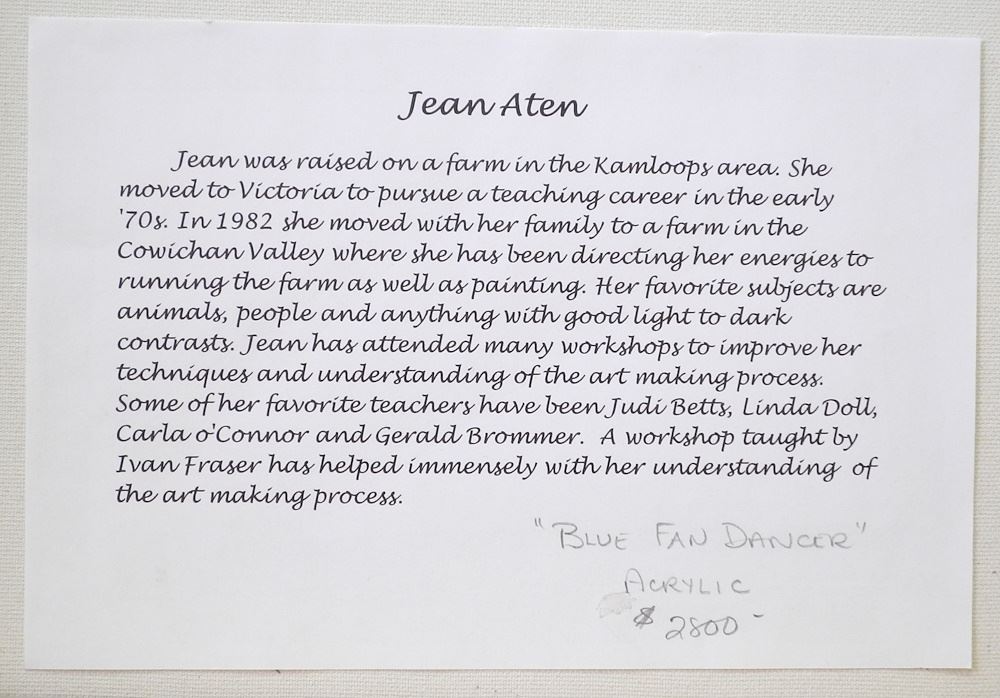 Jean Aten
Jean was raised on a farm in the Kamloops area. She
moved to Victoria to pursue a teaching career in the early
'70s. In 1982 she moved with her family to a farm in the
Cowichan Valley where she has been directing her energies to
running the farm as well as painting. Her favorite subjects are
animals, people and anything with good light to dark
contrasts. Jean has attended many workshops to improve her
techniques and understanding of the art making process.
Some of her favorite teachers have been Judi Betts, Linda Doll,
Carla o'Connor and Gerald Brommer. A workshop taught by
Ivan Fraser has helped immensely with her understanding of
the art making process.
"BLUE FAN DANCER"
ACRYLIC
$ 2800-